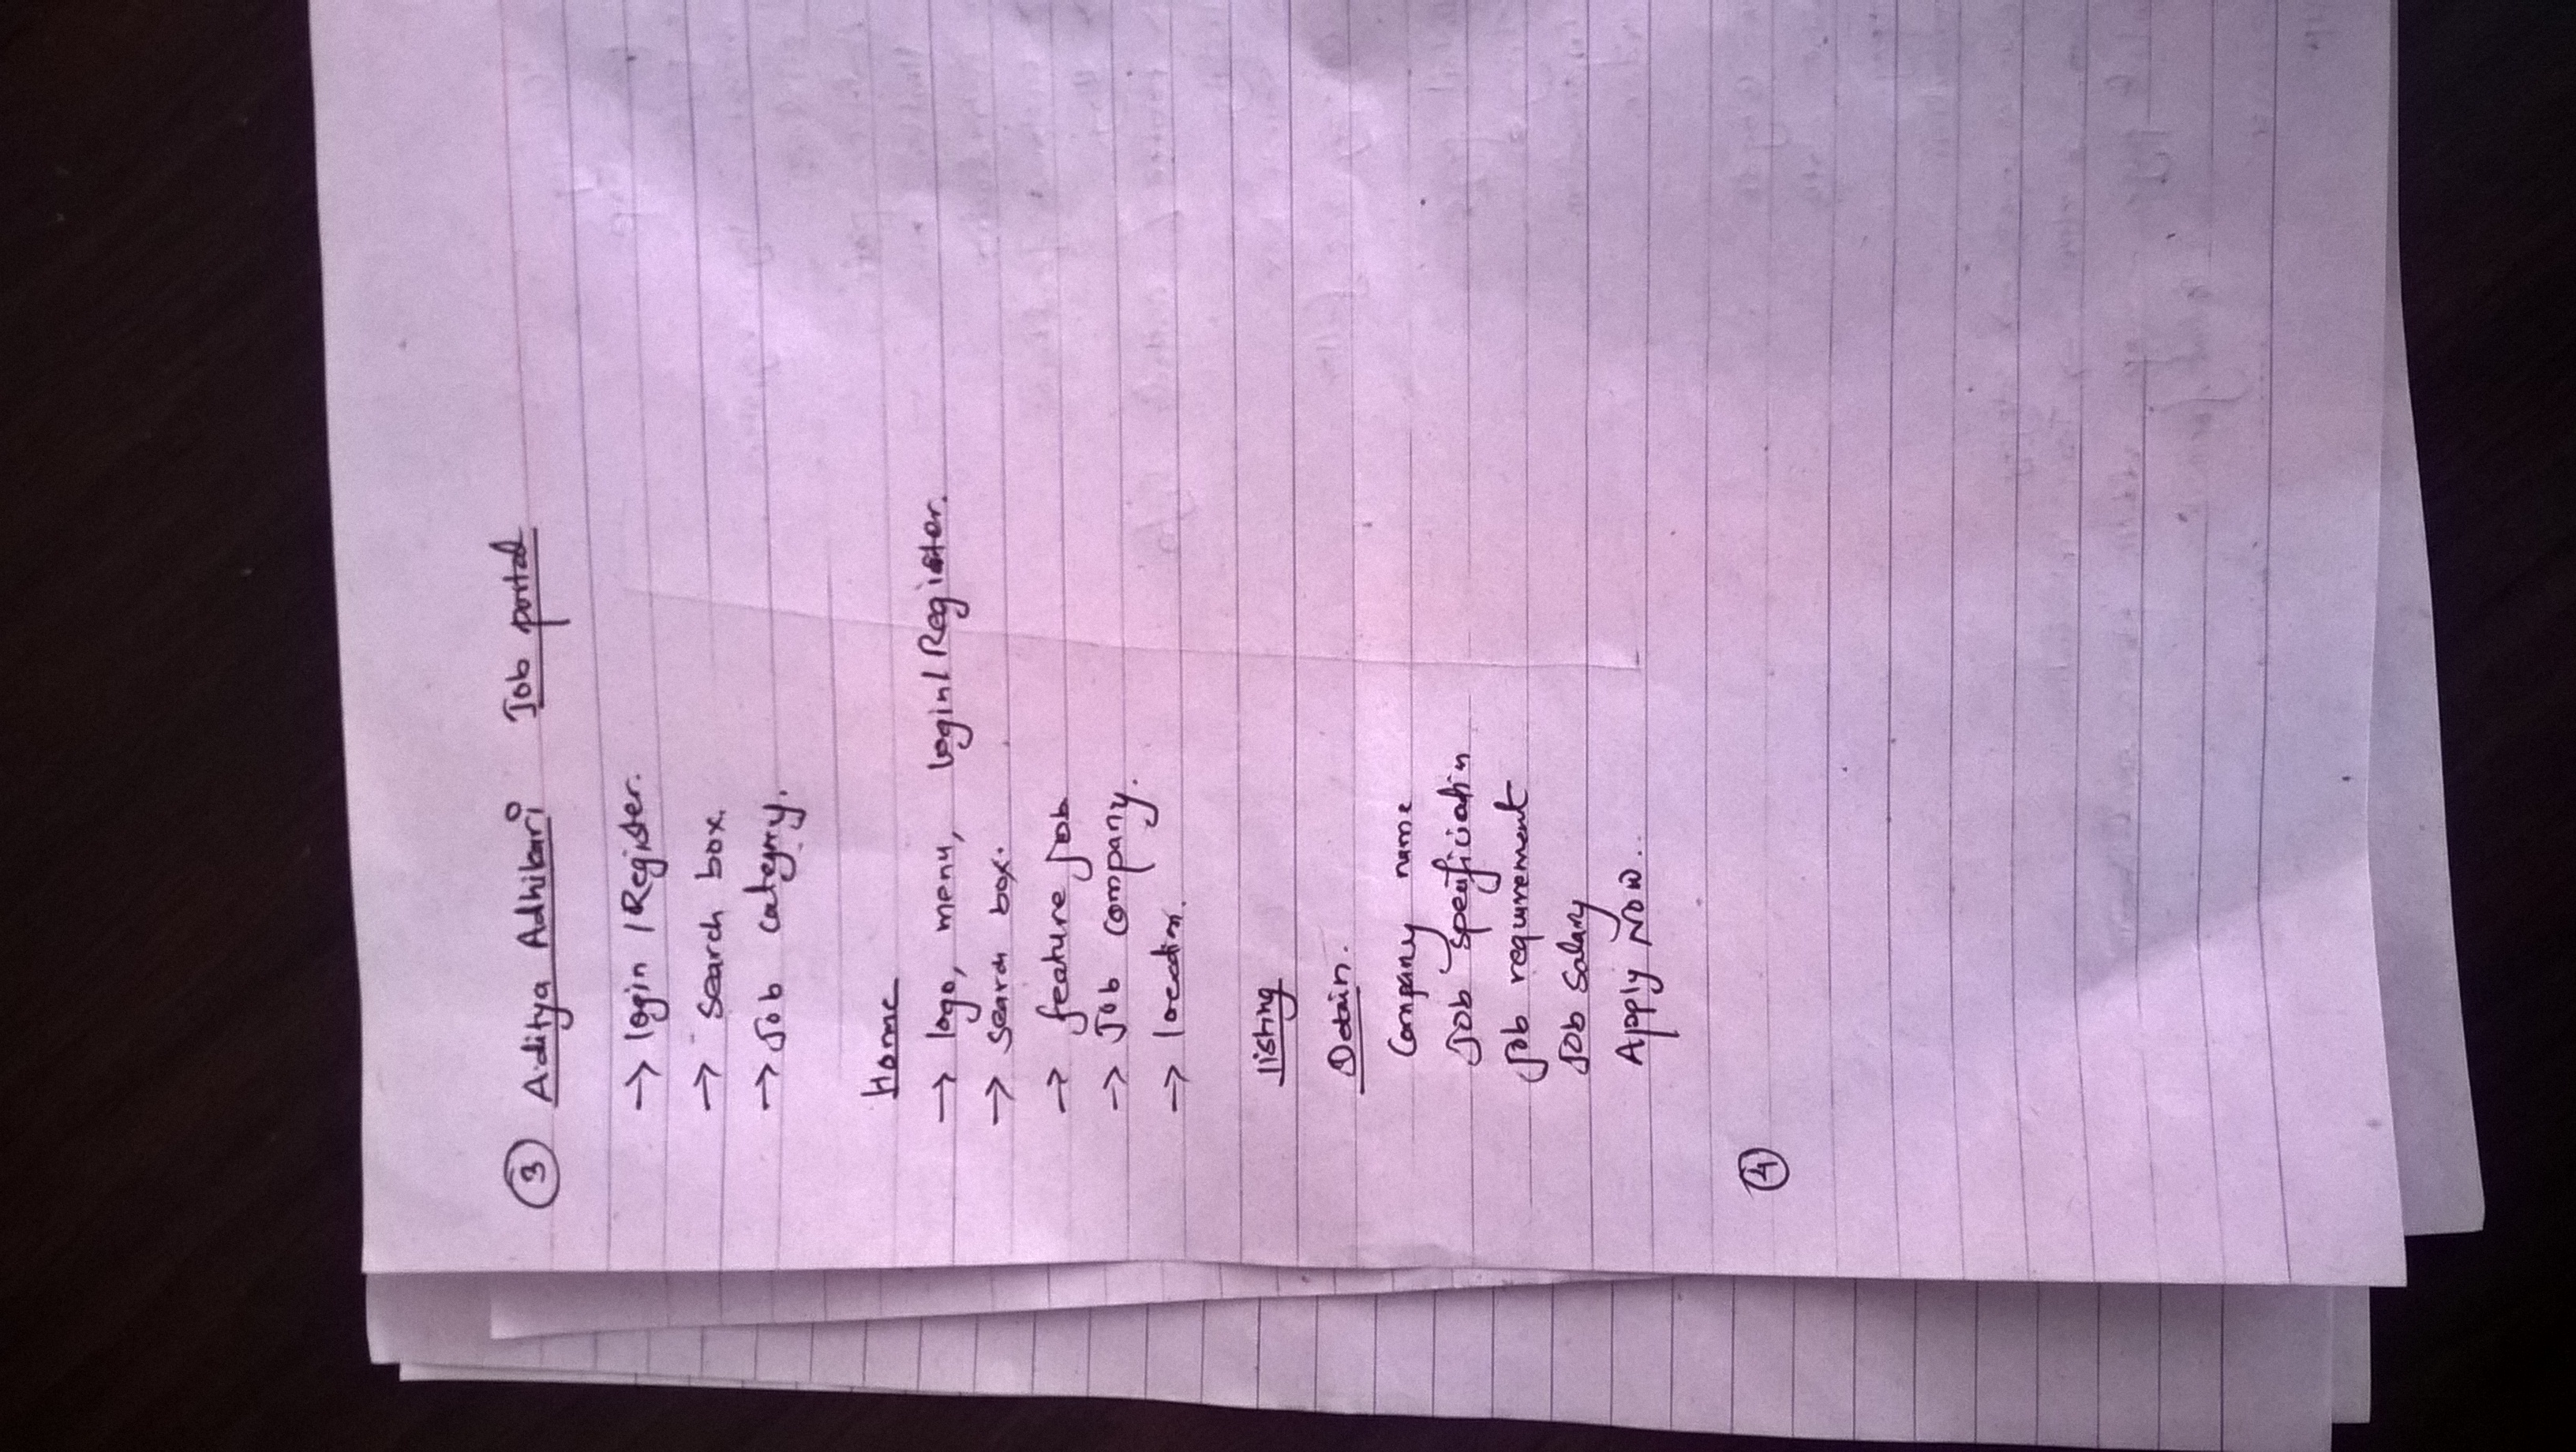 ③ Aditya Adhikari Job portal
→ login / Register.
→ search box.
→ Job category.
Home
→ logo, menu, login / Register.
→ search box.
→ feature job
→ Job company.
→ location.
listing
Detain.
Company name
Job specificiatin
Job requirement
Job salary
Apply Now..
④